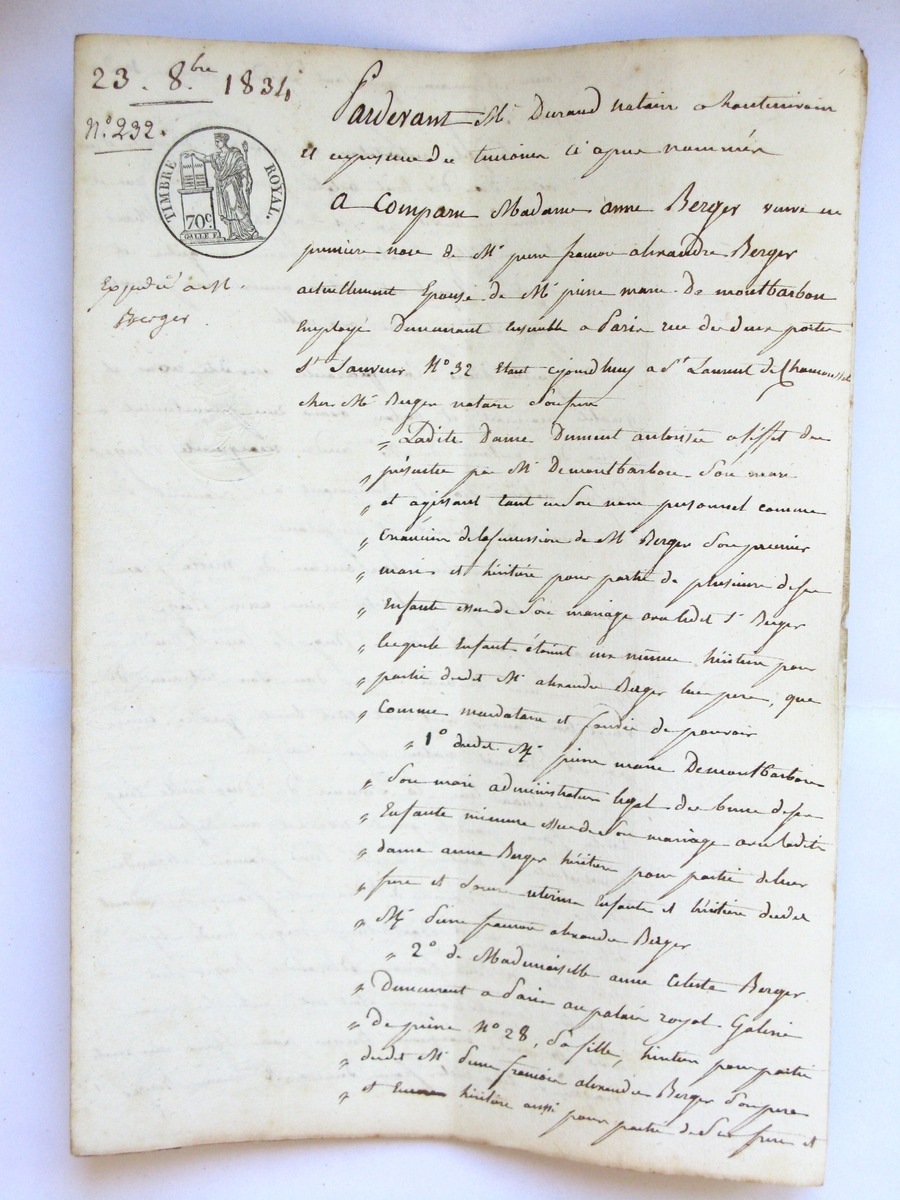 23. 8.bre 1834
N.º 232.
TIMBRE ROYAL.
70c.
GALLE F.
Expedié a M.
Berger
Pardevant Me Durand notaire a hauterivoire
et en presence des temoins ci apres nommés
a Comparu Madame anne Berger veuve en
premiere noce de Mr pierre françois alexandre Berger
actuellement Epouse de Mr pierre marie de montbarbon
Employé Demeurant ensemble a Paris rue des deux portes
St Sauveur Nº 32 Etant cejourdhuy a St Laurent de Chamousset
chez Mr Berger notaire Son frere
" Ladite Dame Dument autorisée a l'effet des
" présentes par Mr Demontbarbon Son mari
" et agissant tant en Son nom personnel comme
" Créancière de la Succession de Mr Berger Son premier
" mari et héritière pour partie de plusieurs de ses
" Enfants issus de Son mariage avec ledit Sr Berger
" lesquels Enfants étoient eux mêmes héritiers pour
" partie dudit Mr alexandre Berger leur pere, que
" Comme mandataire et fondée de pouvoir
" 1º dudit Mr pierre marie Demontbarbon
" Son mari administrateur légal des biens de ses
" Enfants mineurs issus de Son mariage avec ladite
" dame anne Berger héritiers pour partie de leurs
" frere et Soeurs uterins Enfants et héritiers dudit
" Mr Pierre françois alexandre Berger
" 2º de Mademoiselle anne Celeste Berger
" Demeurant a Paris au palais royal Galerie
" de pierre Nº 28, Sa fille, héritière pour partie
" dudit Mr Pierre françois alexandre Berger Son pere
" et héritière aussi pour partie de Ses frere et